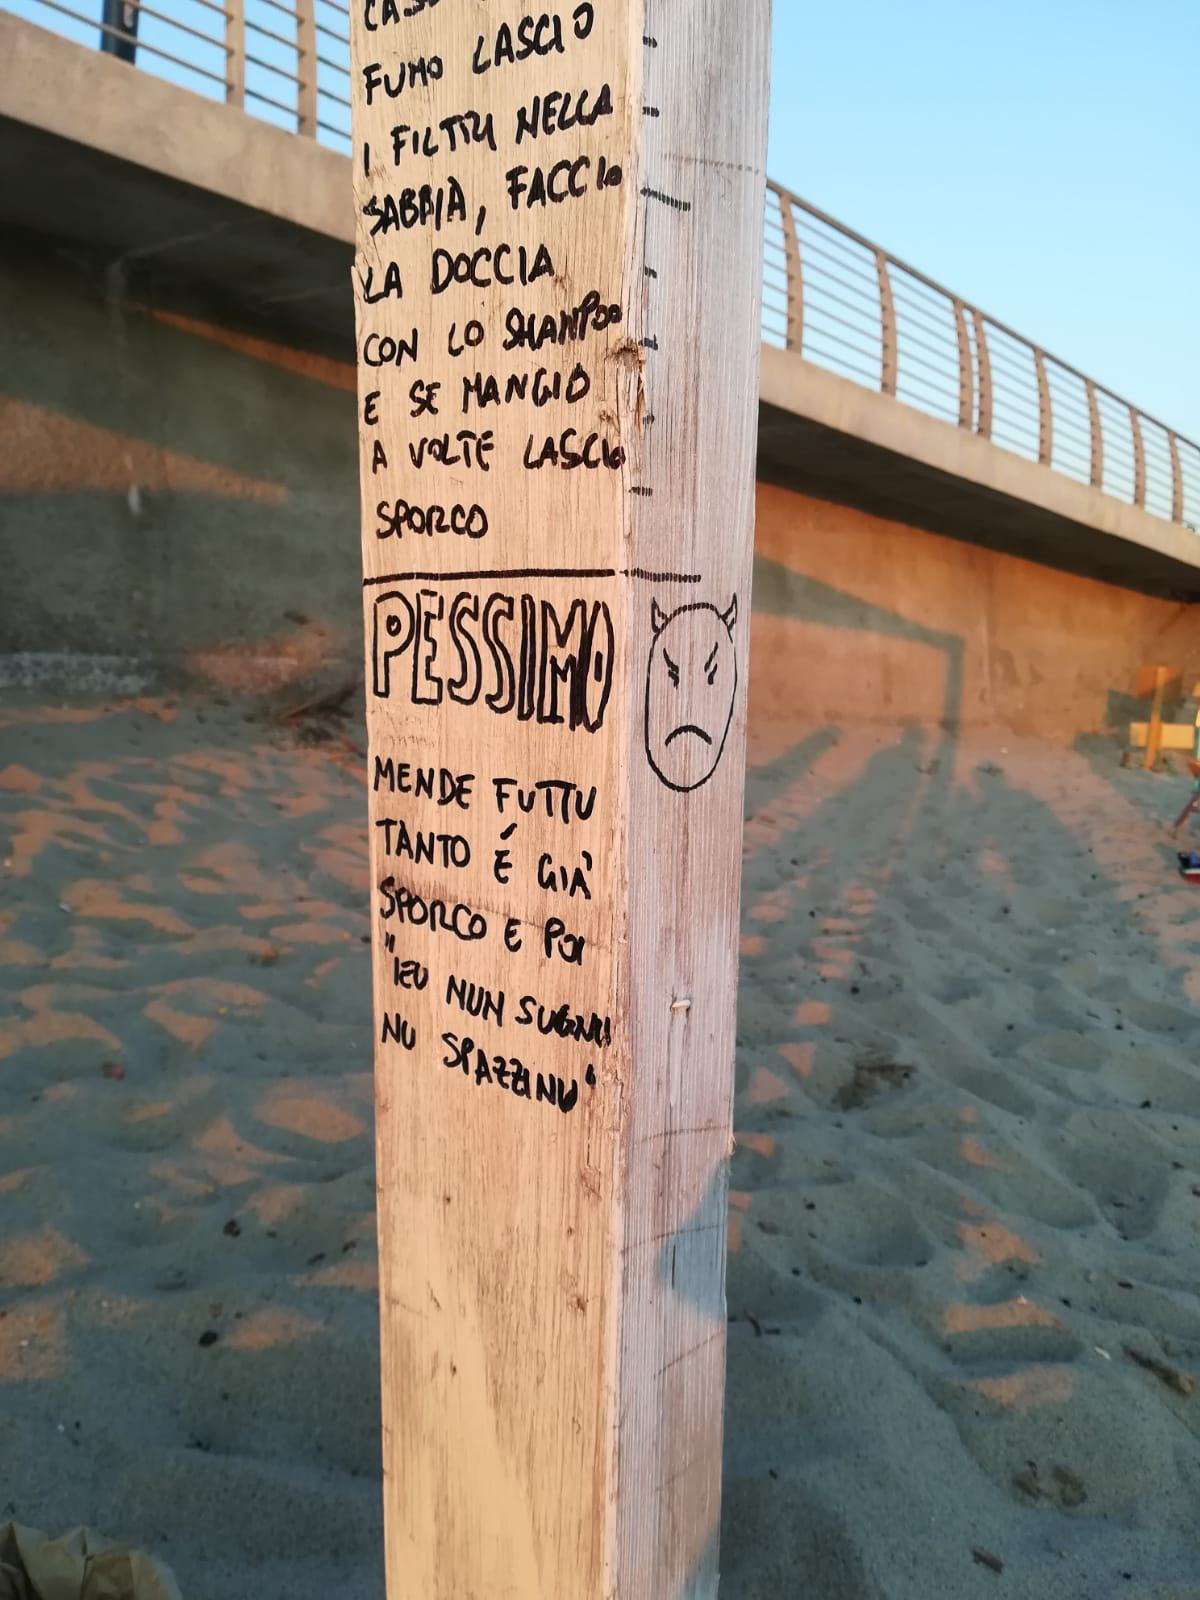 FUMO LASCIO
I FILTRI NELLA
SABBIA, FACCIO
LA DOCCIA
CON LO SHANPOO
E SE MANGIO
A VOLTE LASCIO
SPORCO
PESSIMO
MENDE FUTTU
TANTO É GIÀ
SPORCO E POI
"IEU NUN SUGNU
NU SPAZZINU"